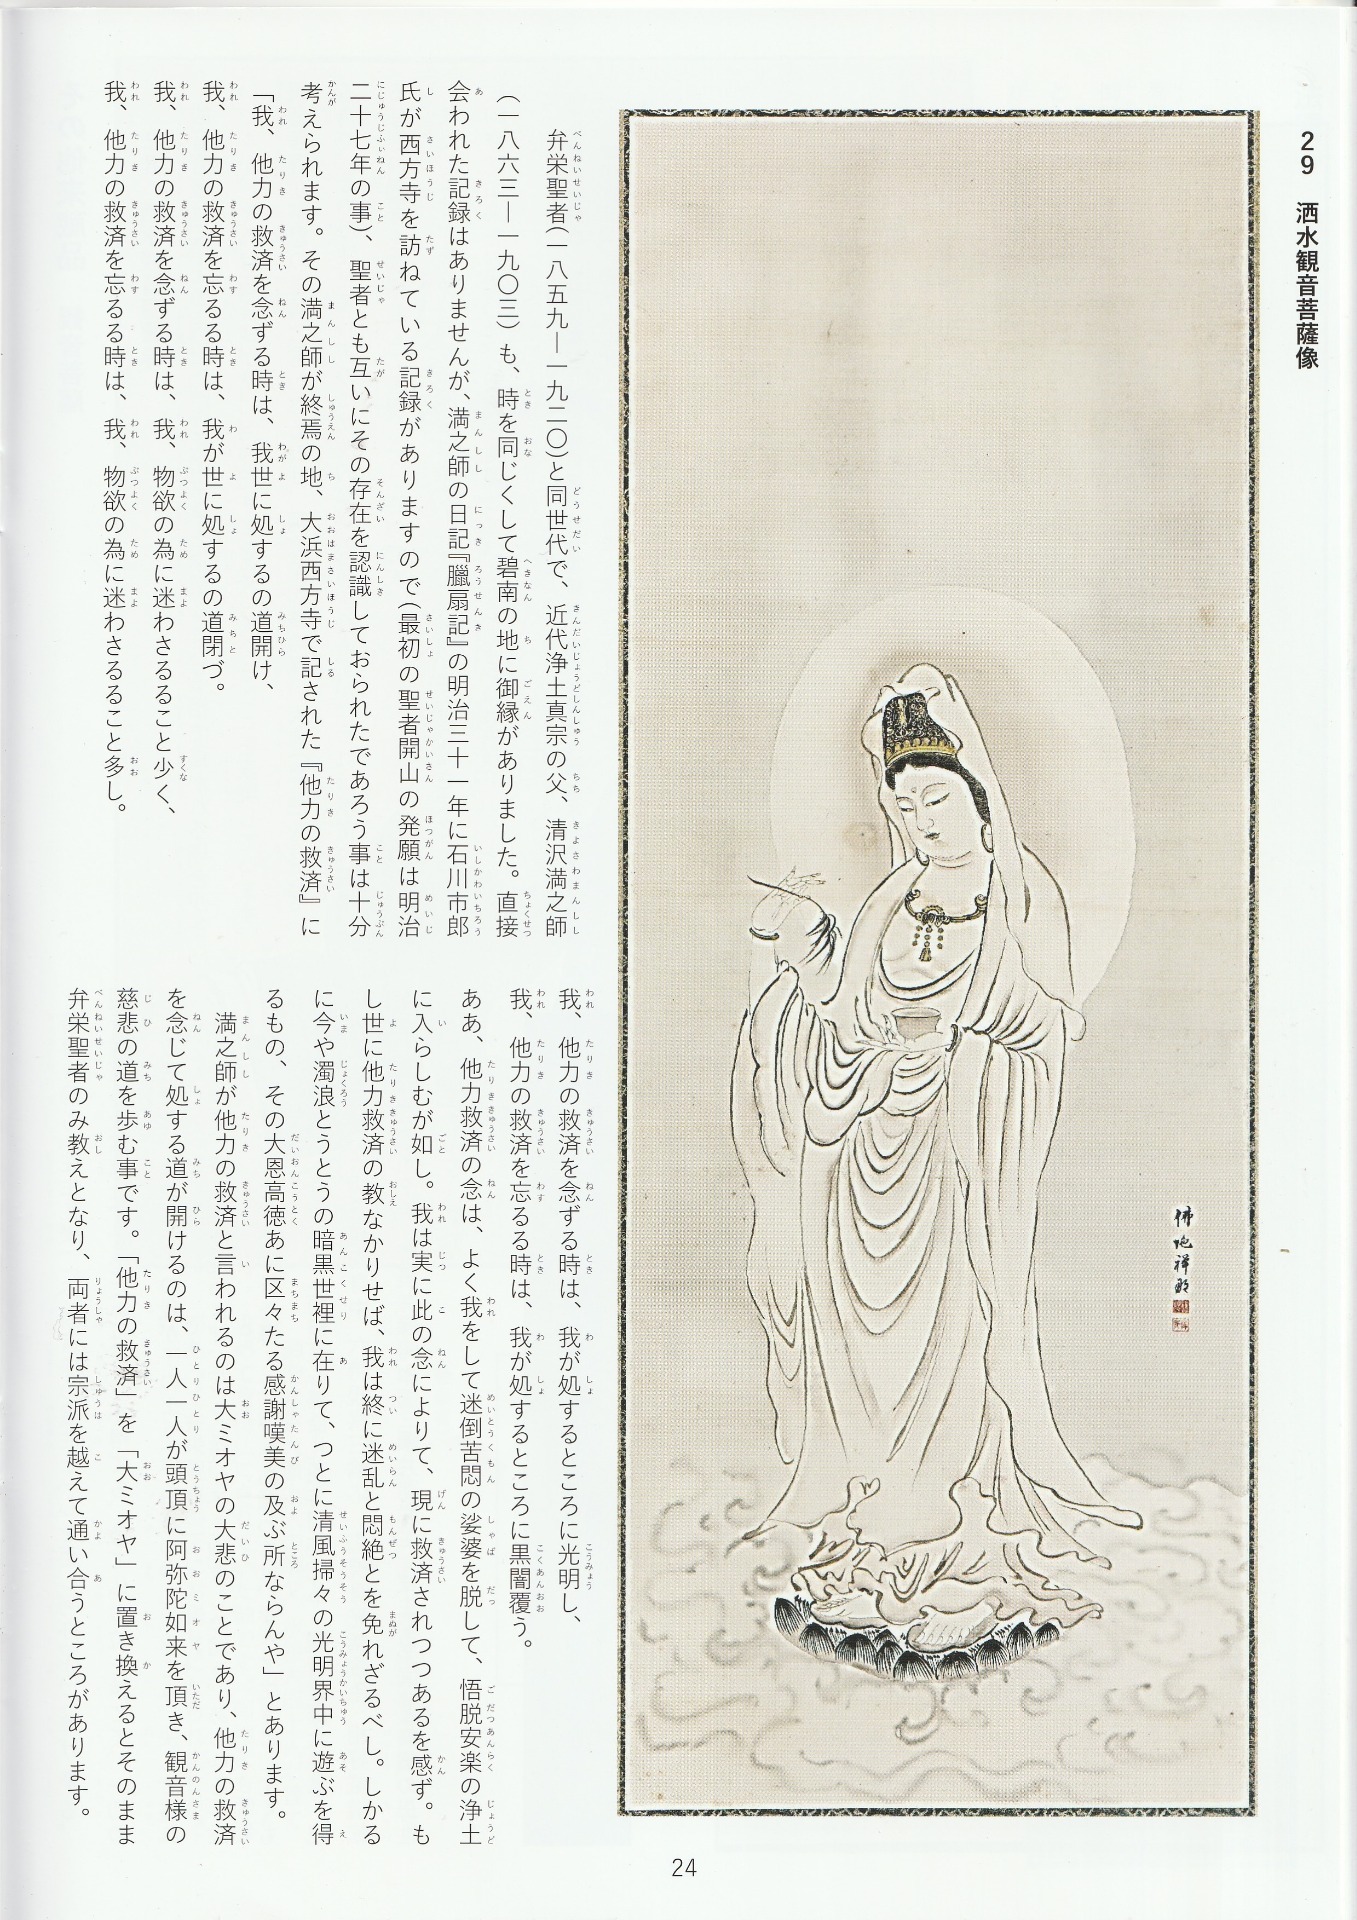 29 洒水観音菩薩像
弁栄聖者(一八五九―一九二〇)と同世代で、近代浄土真宗の父、清沢満之師
(一八六三―一九〇三)も、時を同じくして碧南の地に御縁がありました。直接
会われた記録はありませんが、満之師の日記『臘扇記』の明治三十一年に石川市郎
氏が西方寺を訪ねている記録がありますので(最初の聖者開山の発願は明治
二十七年の事)、聖者とも互いにその存在を認識しておられたであろう事は十分
考えられます。その満之師が終焉の地、大浜西方寺で記された『他力の救済』に
「我、他力の救済を念ずる時は、我世に処するの道開け、
我、他力の救済を忘るる時は、我が世に処するの道閉づ。
我、他力の救済を念ずる時は、我、物欲の為に迷わさるること少く、
我、他力の救済を忘るる時は、我、物欲の為に迷わさるること多し。
我、他力の救済を念ずる時は、我が処するところに光明し、
我、他力の救済を忘るる時は、我が処するところに黒闇覆う。
ああ、他力救済の念は、よく我をして迷倒苦悶の娑婆を脱して、悟脱安楽の浄土
に入らしむが如し。我は実に此の念によりて、現に救済されつつあるを感ず。も
し世に他力救済の教なかりせば、我は終に迷乱と悶絶とを免れざるべし。しかる
に今や濁浪とうとうの暗黒世裡に在りて、つとに清風掃々の光明界中に遊ぶを得
るもの、その大恩高徳あに区々たる感謝嘆美の及ぶ所ならんや」とあります。
満之師が他力の救済と言われるのは大ミオヤの大悲のことであり、他力の救済
を念じて処する道が開けるのは、一人一人が頭頂に阿弥陀如来を頂き、観音様の
慈悲の道を歩む事です。「他力の救済」を「大ミオヤ」に置き換えるとそのまま
弁栄聖者のみ教えとなり、両者には宗派を越えて通い合うところがあります。
24